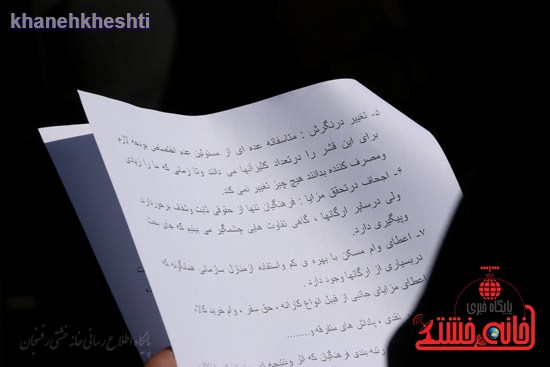 khanehkheshti
۵- تغییر درنگرش : متاسفانه عده ای از مسئولین عدم اختصاص بودجه لازم
برای این قشر را درتعداد کثیرآنها می دانند وتا زمانی که ما را زیادی
ومصرف کننده بدانند هیچ چیز تغییر نمی کند.
۶- اجحاف درتحقق مزایا : فرهنگیان تنها از حقوقی ثابت وشفاف برخوردارند
ولی درسایر ارگانها ، گاهی تفاوت هایی چشمگیر می بینیم که جای بحث
وپیگیری دارد.
۷- اعطای وام مسکن با بهره ی کم واستفاده ازمنازل سازمانی همانگونه که
دربسیاری از ارگانها وجود دارد.
اعطای مزایای جانبی از قبیل انواع کارانه ، حق سفر ، وام خرید کالا،
نقدی ، پاداش های متفرقه و........
رتبه بندی فرهنگیان که اثر ونتیجه
پایگاه خبری
خانه خشتی
پایگاه اطلاع رسانی خانه خشتی رفسنجان